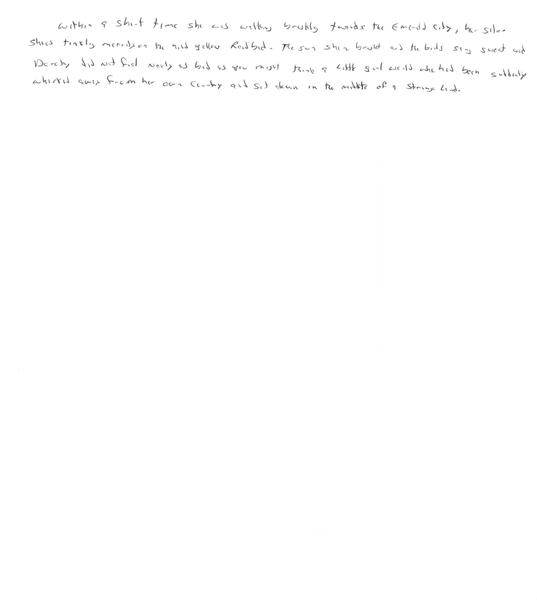 Within a short time she was walking briskly towards the Emerald City, her silver
shoes tinkling merrily on the hard yellow Roadbed. The sun shone bright and the birds sang sweet and
Dorothy did not feel nearly as bad as you might think a little girl would who had been suddenly
whisked away from her own country and set down in the middle of a strange land.